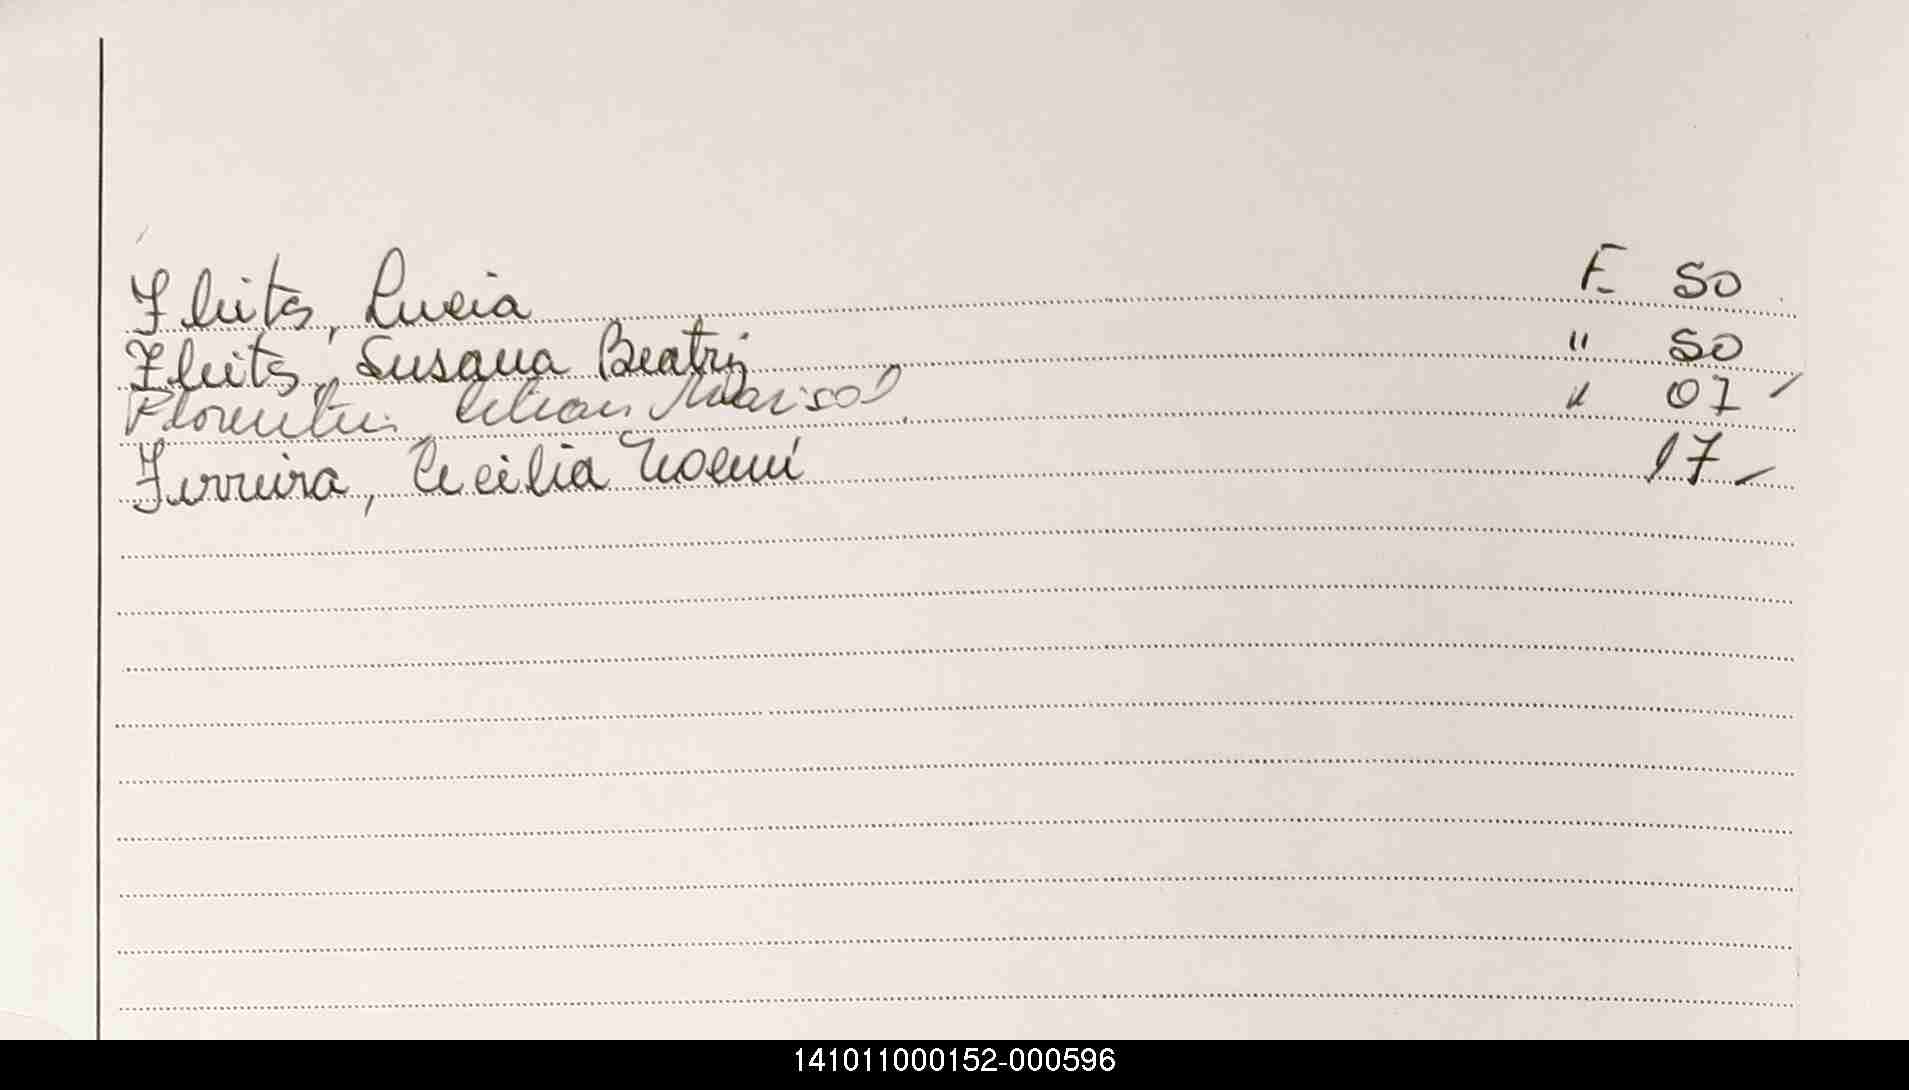 Fleitas, Lucia F. 50
Fleitas, Susana Beatriz " 50
Florentin Lilian Marisol " 07
Ferreira, Cecilia Noemí 17
141011000152-000596